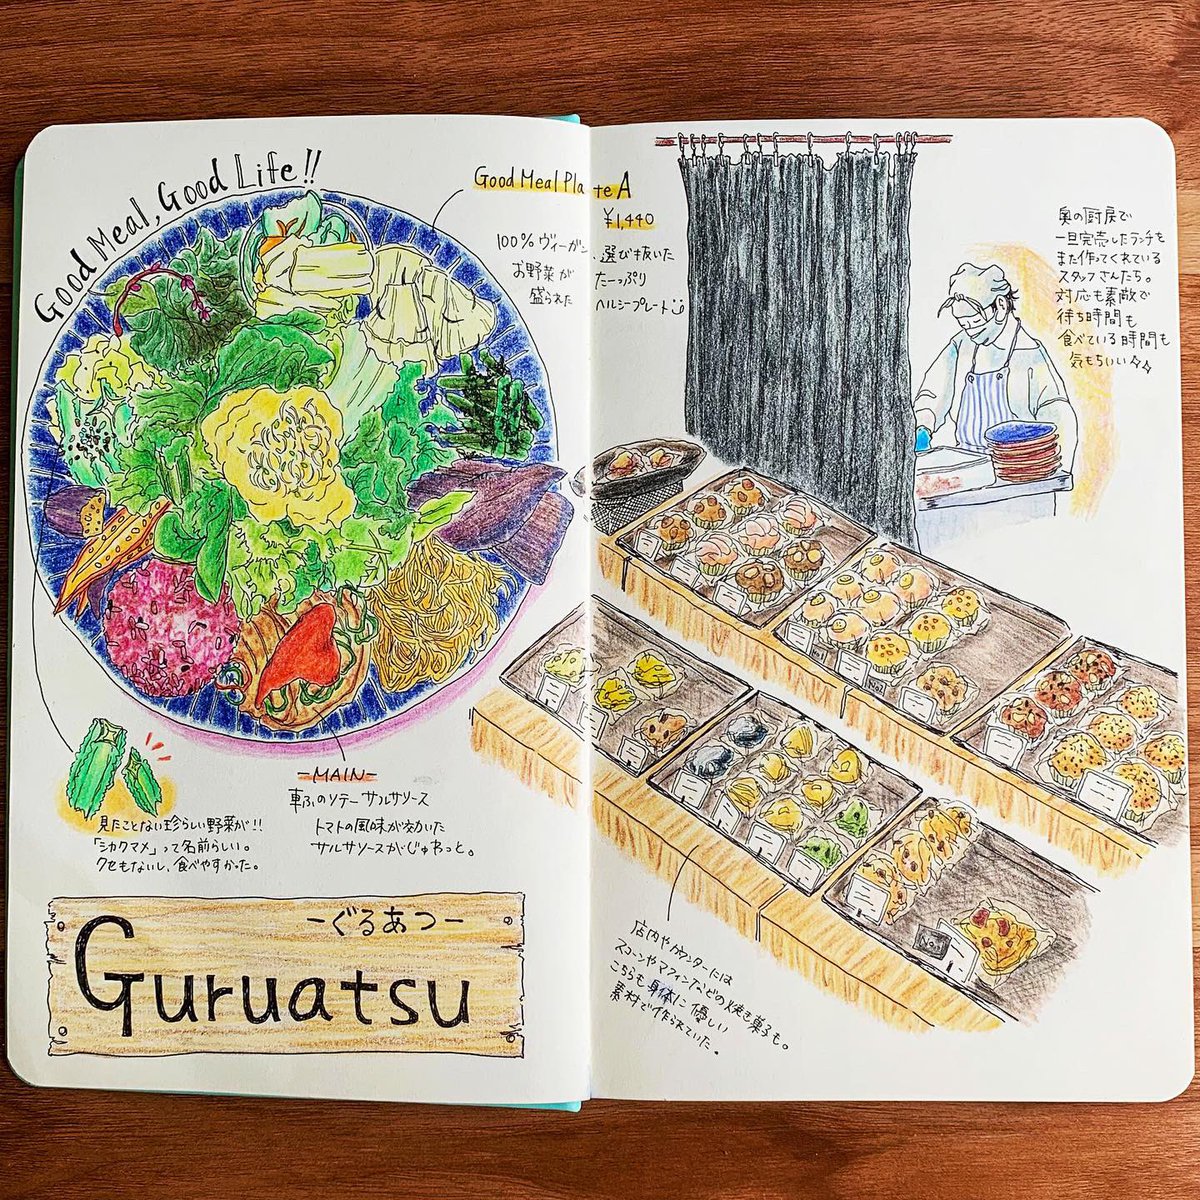 Good Meal, Good Life!!
Good Meal Plate A
¥1,440
100% ヴィーガン、選び抜いた
お野菜が たーっぷり
盛られた ヘルシープレート
奥の厨房で
一旦完売したランチも
また作ってくれている
スタッフさんたち。
対応も素敵で
待ち時間も
食べている時間も
気もちいい☆☆
-MAIN-
車ふのソテー サルサソース
トマトの風味が効いた
サルサソースがじゅわっと。
見たことない珍らしい野菜が!!
「シカクマメ」って名前らしい。
クセもないし、食べやすかった。
-ぐるあつ-
Guruatsu
店内やカウンターには
スコーンやマフィンなどの焼き菓子も。
こちらも身体に優しい
素材で作られていた。